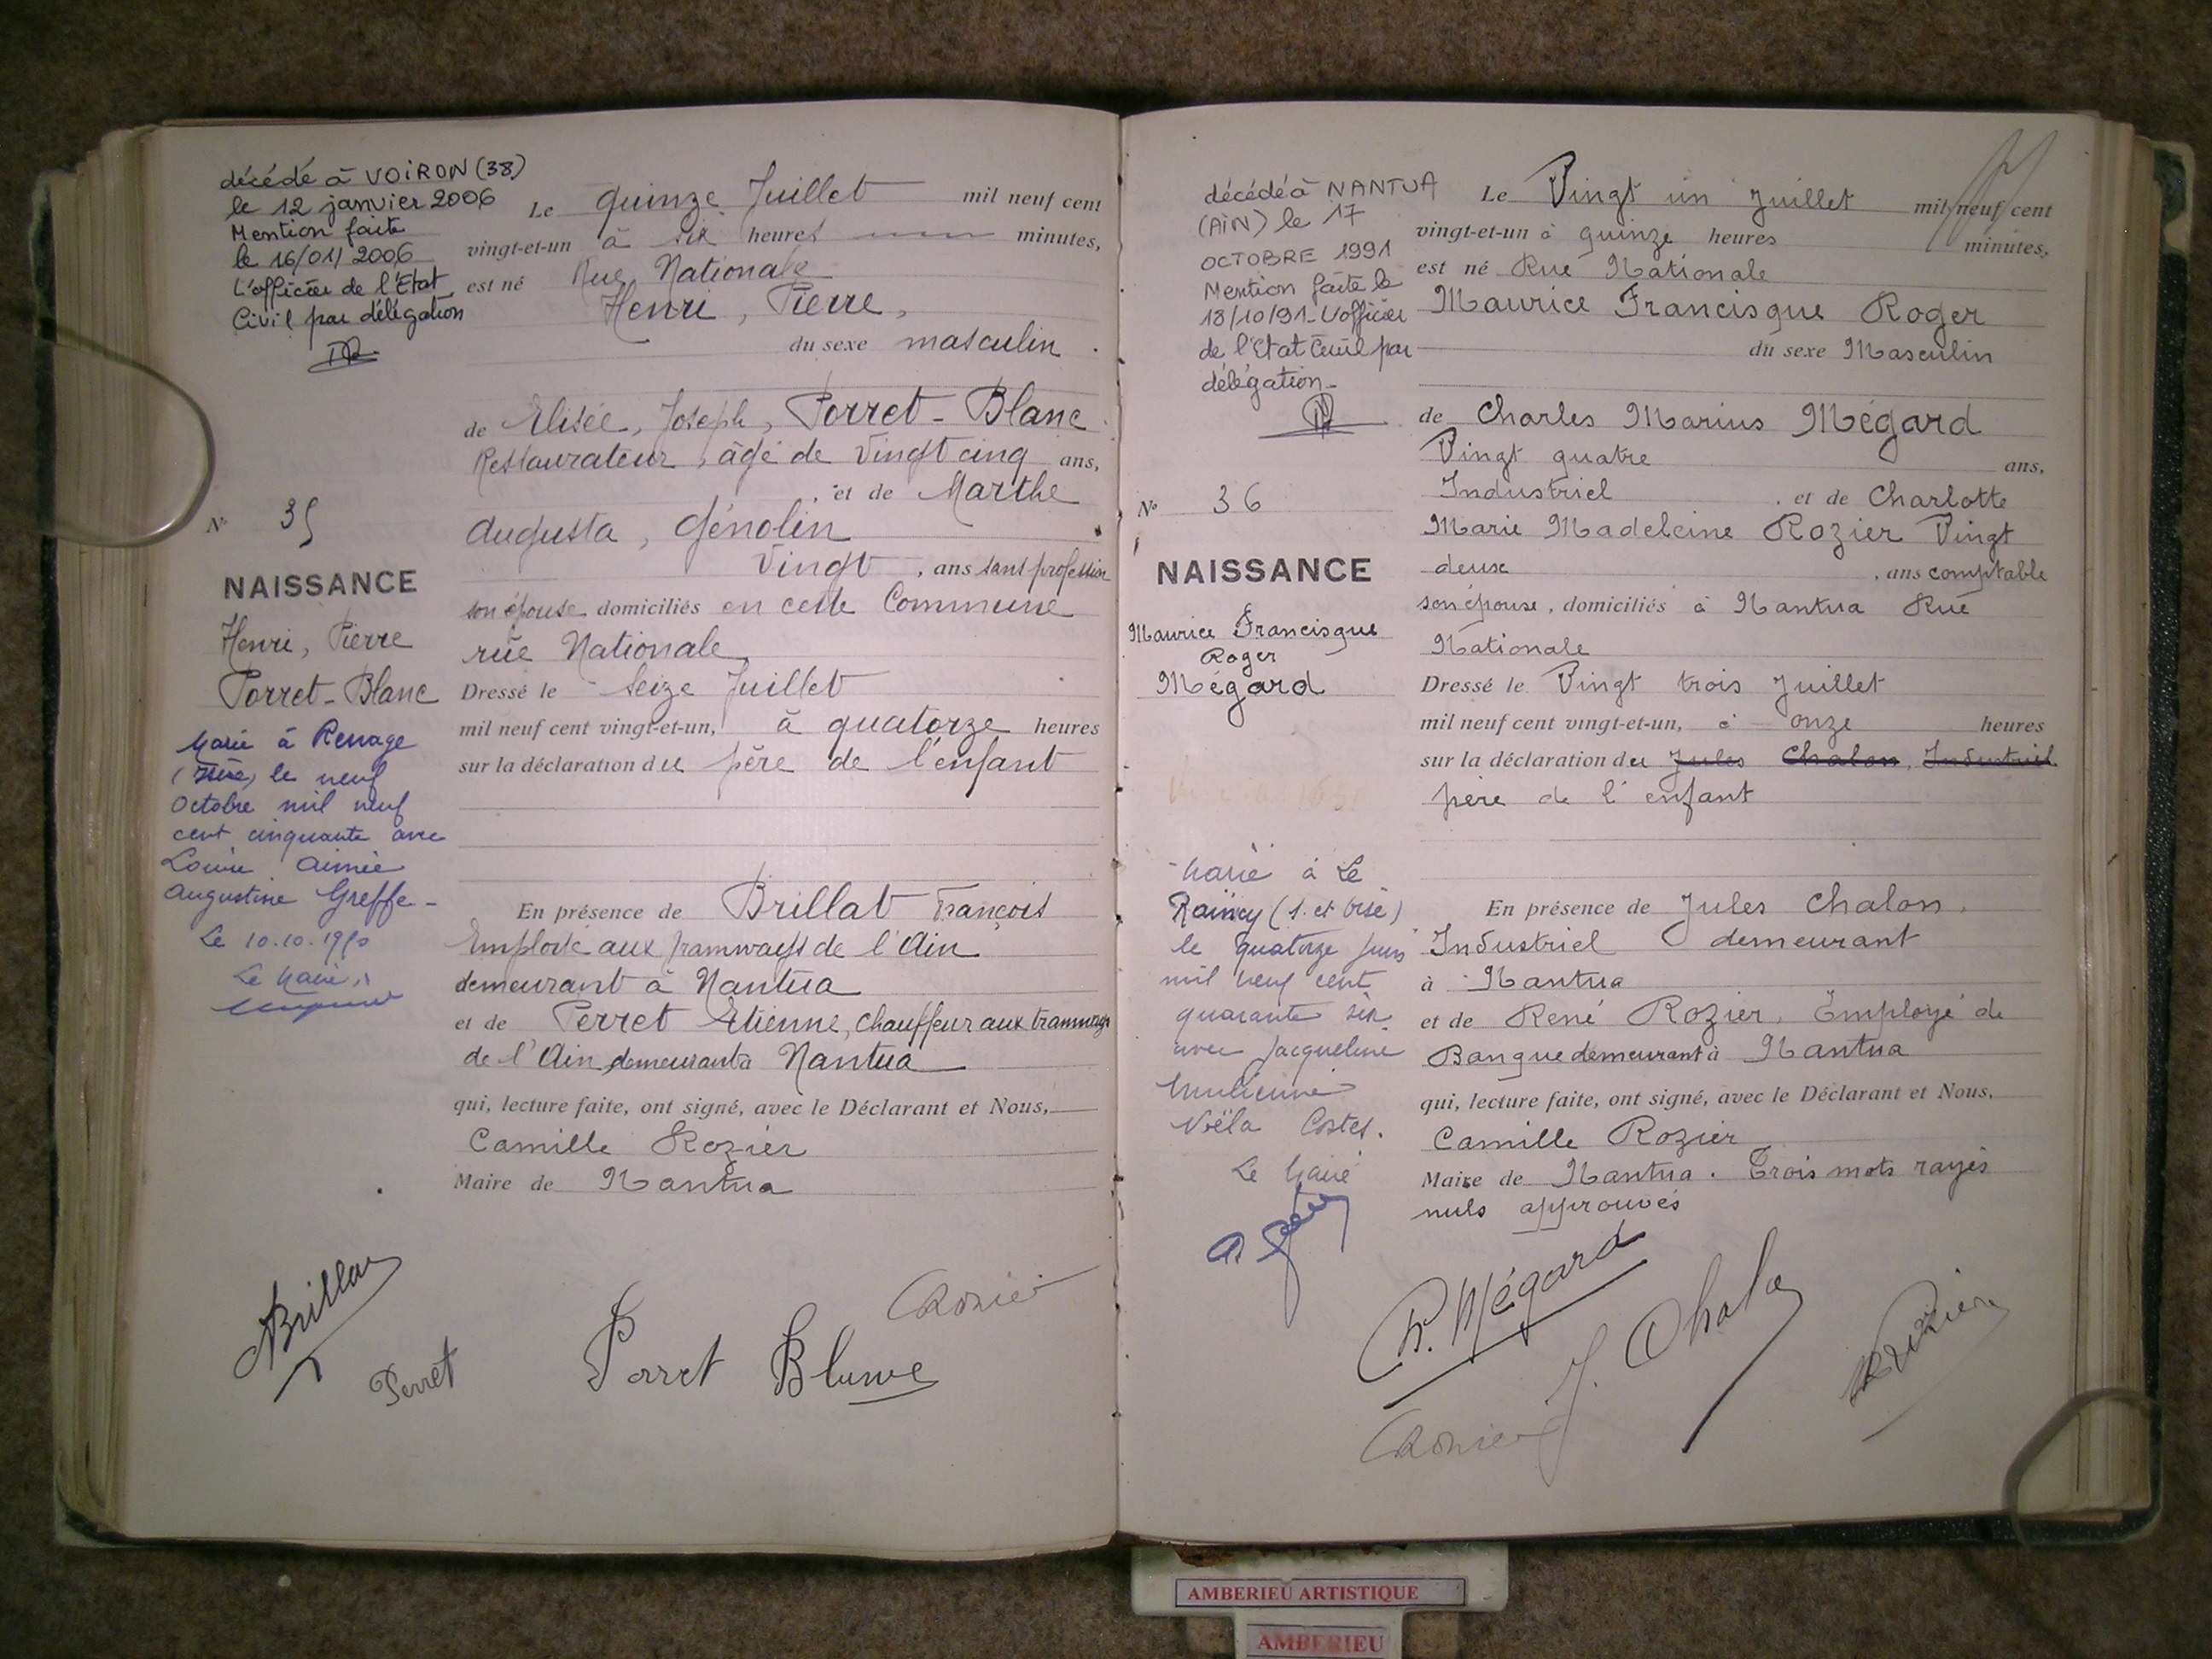 décédé à VOIRON (38)
le 12 janvier 2006
Mention faite
le 16/01/2006
L'officier de l'Etat
Civil par délégation
N° 35
NAISSANCE
Henri, Pierre
Porret-Blanc
Marié à Renage
(Isère) le neuf
Octobre mil neuf
cent cinquante avec
Louise Aimée
Augustine Greffe-
Le 10.10.1950
Le Maire,
Le quinze Juillet mil neuf cent
vingt-et-un à six heures minutes,
est né Rue Nationale
Henri, Pierre,
du sexe masculin.
de Elisée, Joseph, Porret-Blanc
Restaurateur, âgé de Vingt cinq ans,
, et de Marthe
Augusta, Génolin
Vingt, ans sans profession
son épouse domiciliés en cette Commune
rue Nationale
Dressé le Seize Juillet
mil neuf cent vingt-et-un, à quatorze heures
sur la déclaration du père de l'enfant
En présence de Brillat François
Employé aux tramways de l'Ain
demeurant à Nantua
et de Perret Etienne, chauffeur aux tramways
de l'Ain demeurant à Nantua
qui, lecture faite, ont signé, avec le Déclarant et Nous,
Camille Rozier
Maire de Nantua
Brillat
Perret
Porret Blanc
Rozier
décédé à NANTUA
(AIN) le 17
OCTOBRE 1991
Mention faite le
18/10/91-L'officier
de l'Etat Civil par
délégation-
N° 36
NAISSANCE
Maurice Francisque
Roger
Mégard
Marié à Le
Raincy (S. et Oise)
le quatorze juin
mil neuf cent
quarante six
avec Jacqueline
Noëla Costes.
Le Maire
Le Vingt un Juillet mil neuf cent
vingt-et-un à quinze heures minutes,
est né Rue Nationale
Maurice Francisque Roger
du sexe Masculin
de Charles Marius Mégard
Vingt quatre ans,
Industriel, et de Charlotte
Marie Madeleine Rozier Vingt
deux, ans comptable
son épouse, domiciliés à Nantua Rue
Nationale
Dressé le Vingt trois Juillet
mil neuf cent vingt-et-un, à onze heures
sur la déclaration du Jules Chalon, Industriel
père de l'enfant
En présence de Jules Chalon,
Industriel demeurant
à Nantua
et de René Rozier, Employé de
Banque demeurant à Nantua
qui, lecture faite, ont signé, avec le Déclarant et Nous,
Camille Rozier
Maire de Nantua. Trois mots rayés
nuls approuvés
Ch. Mégard
J. Chalon
Rozier
AMBERIEU ARTISTIQUE
AMBERIEU